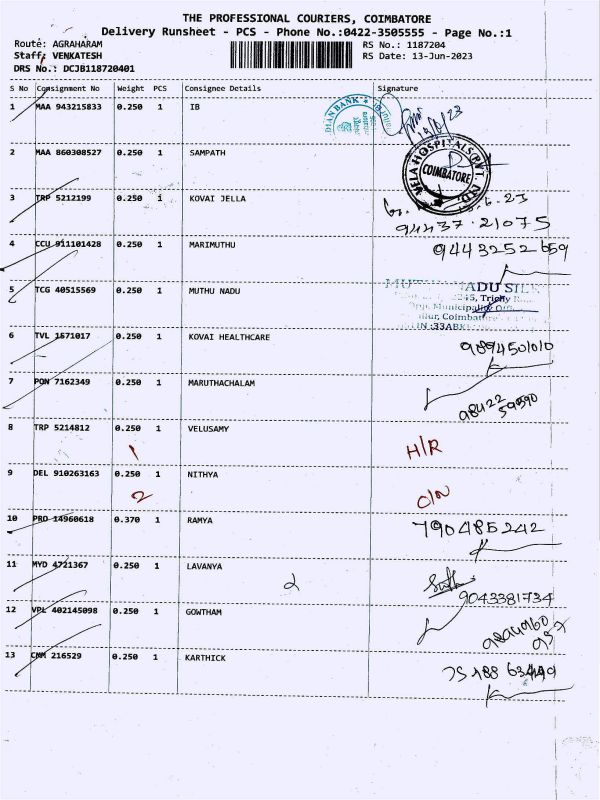 THE PROFESSIONAL COURIERS, COIMBATORE
Delivery Runsheet - PCS - Phone No.:0422-3505555 - Page No.:1
Route: AGRAHARAM RS No.: 1187204
Staff: VENKATESH RS Date: 13-Jun-2023
DRS No.: DCJB118720401
S No Consignment No Weight PCS Consignee Details Signature
1 MAA 943215833 0.250 1 IB
2 MAA 860308527 0.250 1 SAMPATH
VELA HOSPITALS COIMBATORE
3 TRP 5212199 0.250 1 KOVAI JELLA
94437 21075
4 CCU 911101428 0.250 1 MARIMUTHU 9443252659
5 TCG 40515569 0.250 1 MUTHU NADU
6 TVL 1571017 0.250 1 KOVAI HEALTHCARE 9894501010
7 PON 7162349 0.250 1 MARUTHACHALAM
98422
8 TRP 5214812 0.250 1 VELUSAMY H/R
1
9 DEL 910263163 0.250 1 NITHYA
2
10 PRD 14960618 0.370 1 RAMYA 790485242
11 MYD 4721367 0.250 1 LAVANYA
2 9043381734
12 VPL 402145098 0.250 1 GOWTHAM
13 CNM 216529 0.250 1 KARTHICK